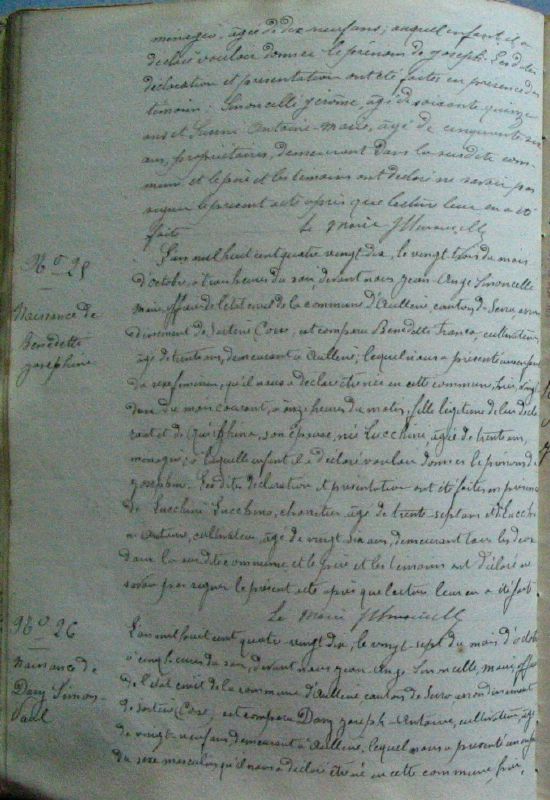 menagère, agée de dix neuf ans; auquel enfant il a
déclaré vouloir donner le prénom de Joseph. Les dites
déclaration et présentation ont été faites en présence des
témoins: Simoncelli Jérôme, âgé de soixante quinze
ans et Susini Antoine-Marie, âgé de cinquante
ans, propriétaires, demeurant dans la susdite com-
mune et le père et les témoins ont déclaré ne savoir pas
signer le présent acte après que lecture leur en a été
faite
Le Maire
No 25
Naissance de
Benedetti
Josephine
L'an mil huit cent quatre vingt dix, le vingt trois du mois
d'octobre à heures du soir devant nous Jean-Ange Simoncelli
maire officier de l'état civil de la commune d'Aullène, canton de Serra arron
dissement de Sartène Corse, est comparu Benedetti cultivateur,
âgé de trente ans, demeurant à Aullène; lequel nous a présenté un enfant
du sexe féminin, qu'il nous a déclaré être né en cette commune, hier, vingt
deux du mois courant, à onze heures du matin, fille légitime de lui décla
rant et de son épouse, née Lucchini, agée de trente ans,
menagère; à laquelle enfant il a déclaré vouloir donner le prénom de
Josephine. Les dites déclaration et présentation ont été faites en présence
de Lucchini Lucchino, charretier, âgé de trente-sept ans et Lucchi
ni Antoine, cultivateur, âgé de vingt six ans, demeurant tous les deux
dans la susdite commune, et le père et les témoins ont déclaré ne
savoir pas signer le présent acte après que lecture leur en a été faite
Le Maire
No 26
Naissance de
Dary Simon-
Paul
L'an mil huit cent quatre vingt dix, le vingt sept du mois d'octobre
à cinq heures du soir, devant nous Jean-Ange Simoncelli, maire officier
de l'état civil de la commune d'Aullène, canton de Serra arrondissement
de Sartène Corse, est comparu Dary Joseph-Antoine, cultivateur, âgé
de vingt-neuf ans demeurant à Aullène, lequel nous a présenté un enfant
du sexe masculin qu'il nous a déclaré être né en cette commune hier,